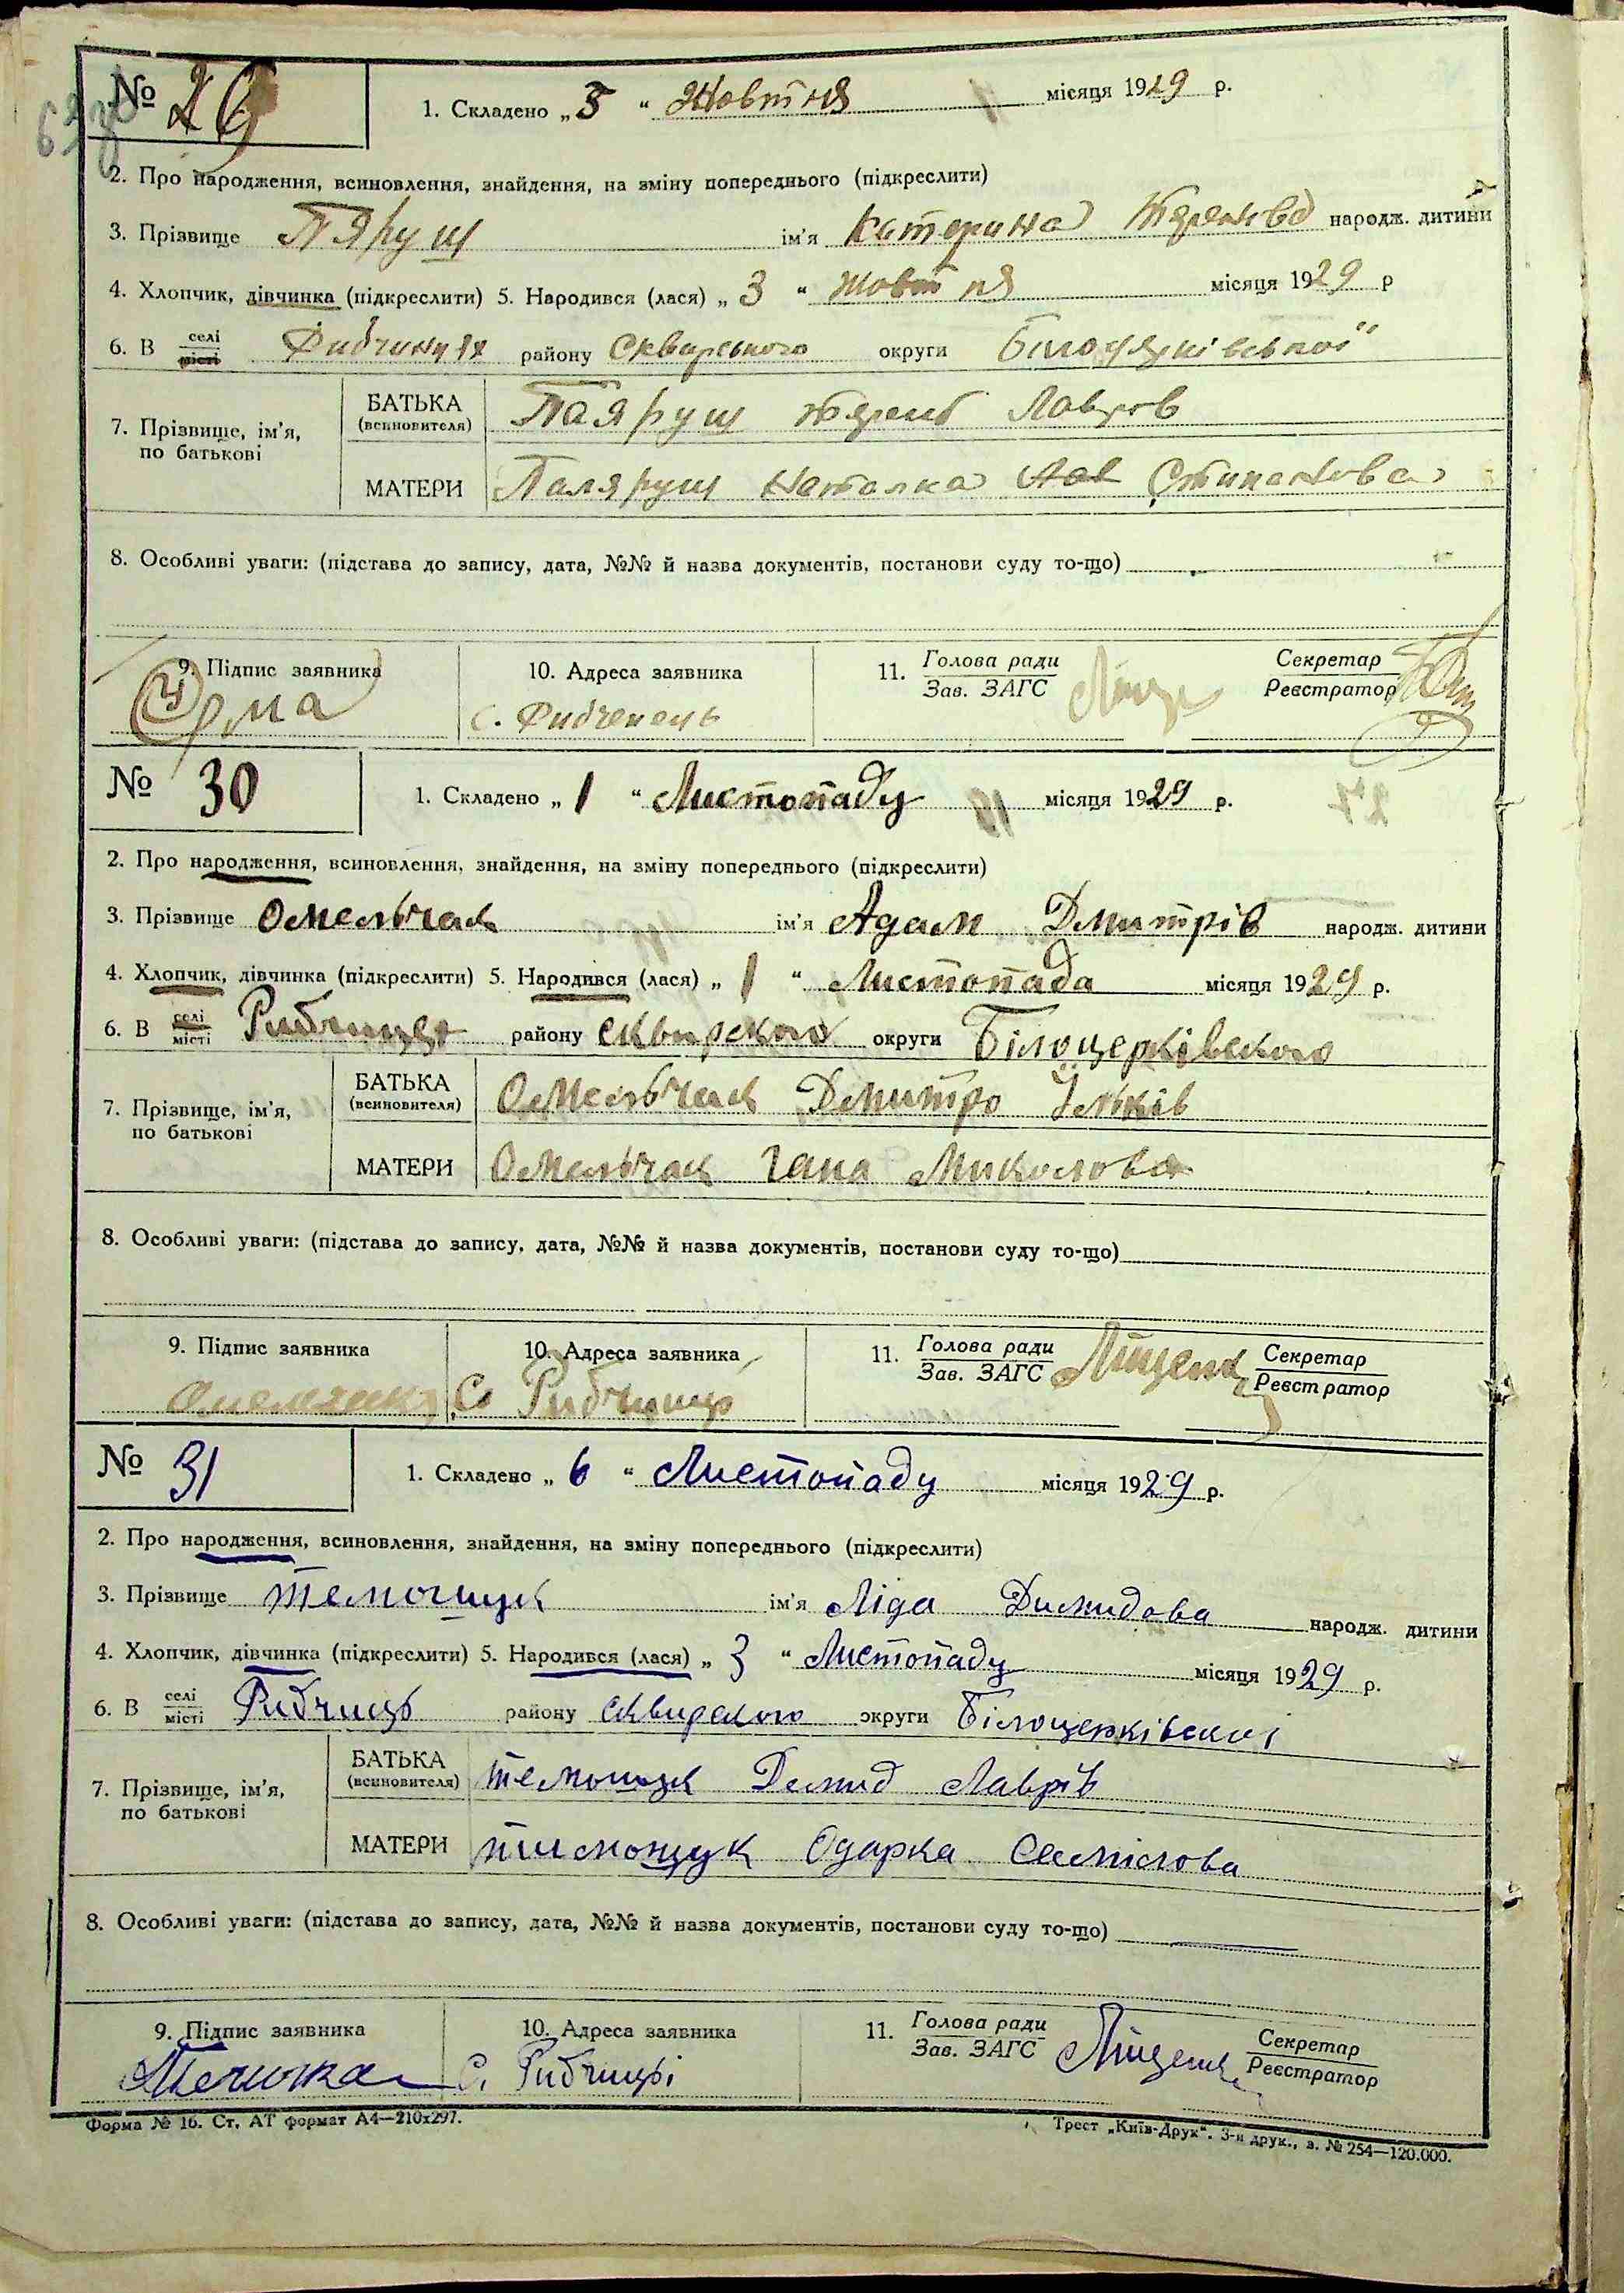 № 29
1. Складено „ 5 “ Жовтня місяця 1929 р.
2. Про народження, всиновлення, знайдення, на зміну попереднього (підкреслити)
3. Прізвище Пяруш ім'я Катерина народж. дитини
4. Хлопчик, дівчинка (підкреслити) 5. Народився (лася) „ 3 “ Жовтня місяця 1929 р
6. В селі місті району Сквирського округи Білоцерківської
7. Прізвище, ім'я, по батькові
БАТЬКА (всиновителя) Лавров
МАТЕРИ Паляруш Наталка Степанова
8. Особливі уваги: (підстава до запису, дата, №№ й назва документів, постанови суду то-що)
9. Підпис заявника 10. Адреса заявника 11. Голова ради Зав. ЗАГС Секретар Реєстратор
с.
№ 30
1. Складено „ 1 “ Листопаду місяця 1929 р.
2. Про народження, всиновлення, знайдення, на зміну попереднього (підкреслити)
3. Прізвище Омельчак ім'я Адам Дмитрів народж. дитини
4. Хлопчик, дівчинка (підкреслити) 5. Народився (лася) „ 1 “ Листопада місяця 1929 р.
6. В селі місті району сквирского округи Білоцерківского
7. Прізвище, ім'я, по батькові
БАТЬКА (всиновителя) Омельчак Дмитро Ільків
МАТЕРИ Омельчак Гана Миколова
8. Особливі уваги: (підстава до запису, дата, №№ й назва документів, постанови суду то-що)
9. Підпис заявника 10. Адреса заявника 11. Голова ради Зав. ЗАГС Секретар Реєстратор
Омельчак
№ 31
1. Складено „ 6 “ Листопаду місяця 1929 р.
2. Про народження, всиновлення, знайдення, на зміну попереднього (підкреслити)
3. Прізвище Темощук ім'я Ліда Димидова народж. дитини
4. Хлопчик, дівчинка (підкреслити) 5. Народився (лася) „ 3 “ Листопаду місяця 1929 р.
6. В селі місті Рибчиць району сквирского округи Білоцерківскої
7. Прізвище, ім'я, по батькові
БАТЬКА (всиновителя) Темощук Демид Лаврів
МАТЕРИ тимощук Одарка Самілова
8. Особливі уваги: (підстава до запису, дата, №№ й назва документів, постанови суду то-що)
9. Підпис заявника 10. Адреса заявника 11. Голова ради Зав. ЗАГС Секретар Реєстратор
с. Рибчиці
Форма № 16. Ст. АТ формат А4—210x297. Трест „Київ-Друк“. 3-я друк., з. № 254—120.000.